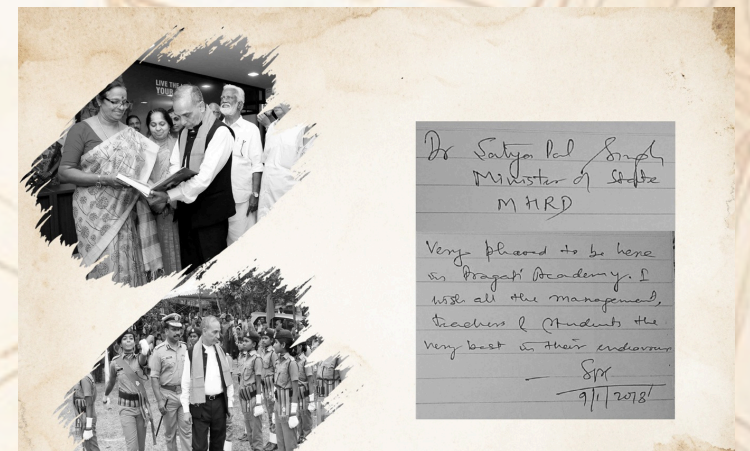 LIVE THE
YOUR
Dr Satya Pal Singh
Minister of State
MHRD
Very pleased to be here
in Pragati Academy. I
wish all the management,
teachers & students the
very best in their endeavour
9/1/2018